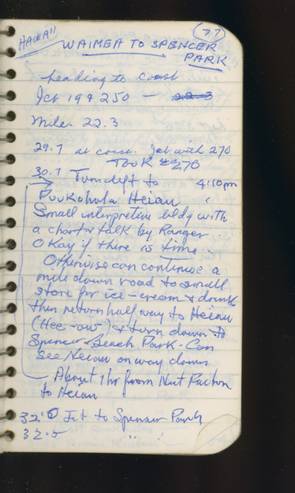 HAWAII
77
WAIMEA TO SPENCER
PARK
heading to coast
Jct 19 & 250 — 22.3
Mile 22.3
29.7 at coast. Jct with 270
Took 270
30.7 Turn left to 4:10pm
Puukohola Heiau
Small interpretive bldg with
a chart & talk by Ranger.
Okay if there is time.
Otherwise can continue a
mile down road to small
store for ice-cream & drinks
then return half way to Heiau
(Hee-ow) & turn down to
Spencer Beach Park - Can
See Heiau on way down
About 1 hr from Nut Factory
to Heiau
32.0 Jct to Spencer Park
32.5